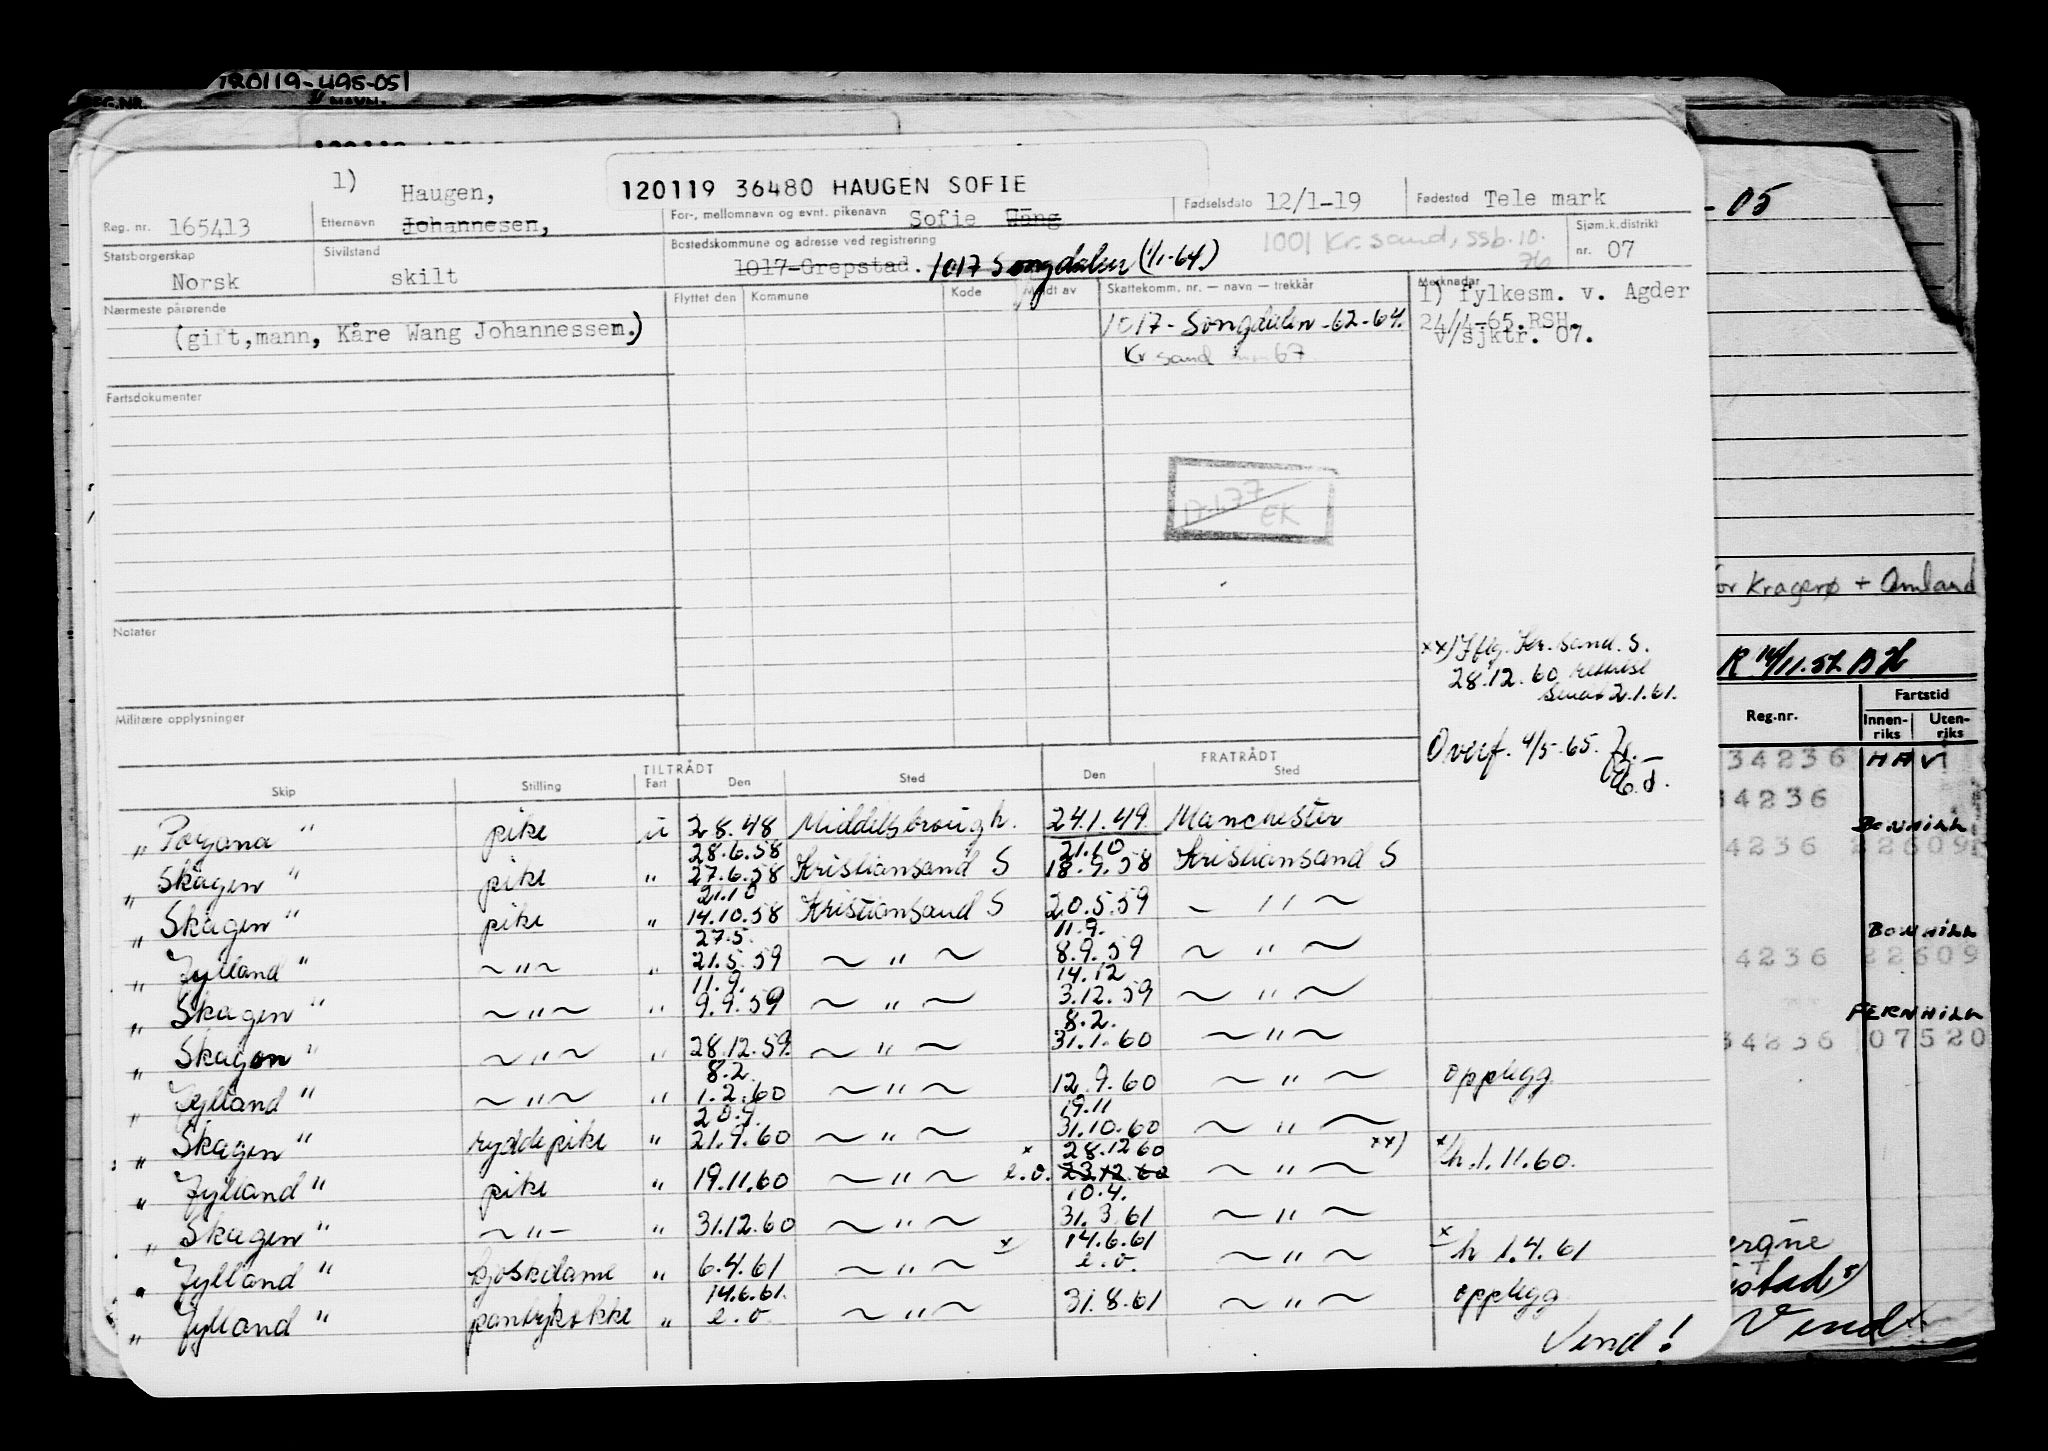 120119-495-05
REG.NR. NAVN:
1)
Haugen,
120119 36480 HAUGEN SOFIE
Reg. nr. 165413
Etternavn Johannesen,
For-, mellomnavn og evnt. pikenavn Sofie Wang
Fødselsdato 12/1-19
Fødested Tele mark
Statsborgerskap Norsk
Sivilstand skilt
Bostedskommune og adresse ved registrering
1017-Grepstad. 1017 Songdalen (1/1-64.)
1001 Kr.sand, ssb.10. 76
Sjøm.k.distrikt nr. 07
Nærmeste pårørende
(gift,mann, Kåre Wang Johannessem.)
Flyttet den Kommune Kode Meldt av
Skattekomm. nr. — navn — trekkår
1017 - Songdalen -62-64.
Kr sand 67
Merknader
1) fylkesm. v. Agder
24/4-65.RSH.
v/sjktr. 07.
Fartsdokumenter
17.1.77
EK
for Kragerø + Omland
Notater
xx) Iflg. Kr. Sand. S.
28.12.60
2.1.61.
R 14/11.57. BH
Militære opplysninger
Overf. 4/5-65.
Reg.nr. Fartstid
Innenriks Utenriks
TILTRÅDT FRATRÅDT
Skip Stilling Fart Den Sted Den Sted
„ Pozana " pike u 2.8.48 Middelsbrough. 24.1.49 Manchester
28.6.58 21.10
„ Skagen " pike " 27.6.58 Kristiansand S 18.9.58 Kristiansand S
21.10
„ Skagen " pike " 14.10.58 Kristiansand S 20.5.59 ~ " ~
27.5. 11.9.
„ Jylland " ~ " ~ " 21.5.59 ~ " ~ 8.9.59 ~ " ~
11.9. 14.12
„ Skagen " ~ " ~ " 9.9.59 ~ " ~ 3.12.59 ~ " ~
8.2.
„ Skagen " ~ " ~ " 28.12.59. ~ " ~ 31.1.60 ~ " ~
8.2.
„ Jylland " ~ " ~ " 1.2.60 ~ " ~ 12.9.60 ~ " ~ opplegg
20.9. 19.11
„ Skagen " ryddepike " 21.9.60 ~ " ~ 31.10.60 ~ " ~
x 28.12 60 xx) x/h.1.11.60.
„ Jylland " pike " 19.11.60 ~ " ~ e.o. 23.12.60 ~ " ~
10.4.
„ Skagen " ~ " – " 31.12.60 ~ " ~ 31.3.61 ~ " ~
x 14.6.61
„ Jylland " kjoskdame " 6.4.61 ~ " ~ e.o. ~ " ~ x h 1.4.61
14.6.61.
„ Jylland " pantrykokke " e.o. ~ " ~ 31.8.61 ~ " ~ opplegg
Vend!
- 05
34236 HAVI
34236
BONHILL
34236 22609
BONHILL
34236 22609
FERNHILL
34236 07520
Vend